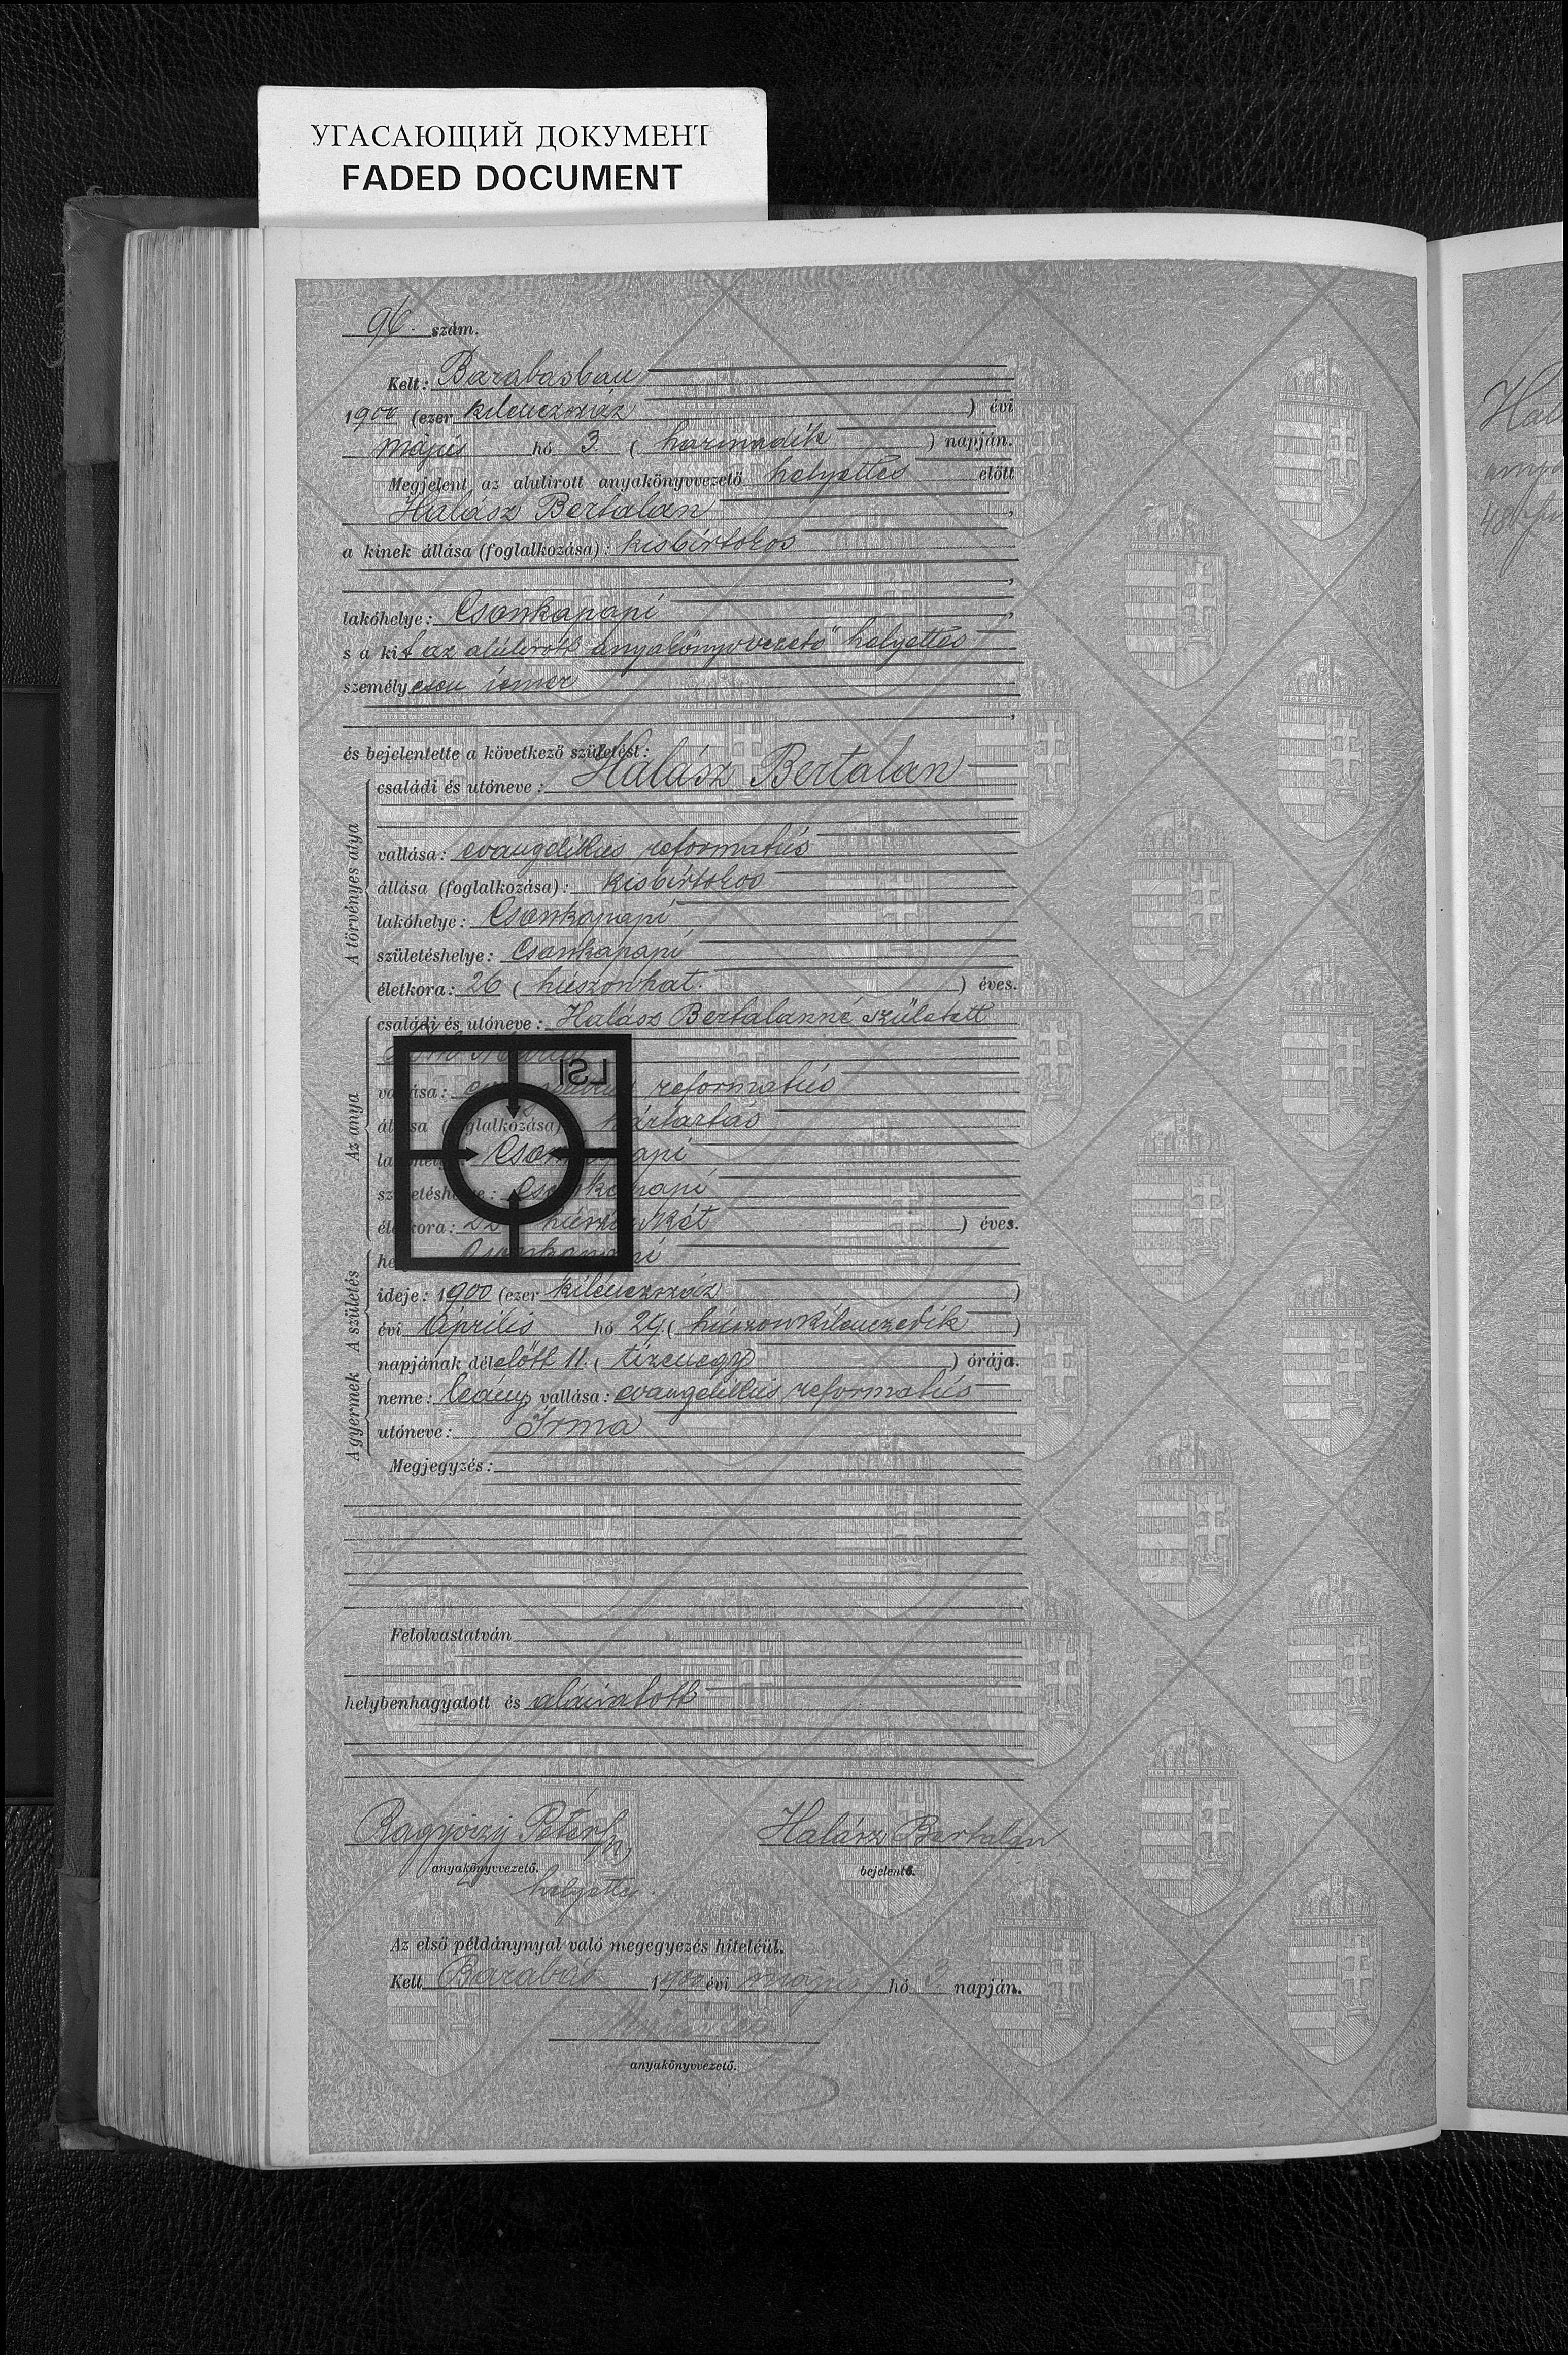 УГАСАЮЩИЙ ДОКУМЕНТ
FADED DOCUMENT
96. szám.
Kelt: Barabásban
1900 (ezer kilenczszáz ) évi
május hó 3. ( harmadik ) napján.
Megjelent az alulirott anyakönyvvezető helyettes előtt
Halász Bertalan ,
a kinek állása (foglalkozása): kisbirtokos
,
lakóhelye: Csonkapapi ,
s a kit az alúlirott anyakönyvvezető helyettes
személyesen ismer
,
és bejelentette a következő születést:
A törvényes atya
családi és utóneve: Halász Bertalan
vallása: evangélikus református
állása (foglalkozása): kisbirtokos
lakóhelye: Csonkapapi
születéshelye: Csonkapapi
életkora: 26 ( húszonhat. ) éves.
Az anya
családi és utóneve: Halász Bertalanné született
vallása: református
állása (foglalkozása) háztartás
Csonkapapi
születéshelye: Csonkapapi
életkora: 22 húszonkét ) éves.
A születés
Csonkapapi
ideje: 1900 (ezer kilenczszáz )
évi Április hó 29. ( húszonkilenczedik )
napjának délelőtt 11. ( tizenegy ) órája.
A gyermek
neme: leány, vallása: evangélikus református
utóneve: Irma
Megjegyzés:
Felolvastatván
helybenhagyatott és aláiratott
Péter Halász Bertalan
anyakönyvvezető. bejelentő.
helyettes.
Az első példánynyal való megegyezés hiteléül.
Kelt Barabás 1900 évi május hó 3. napján.
anyakönyvvezető.
LSI